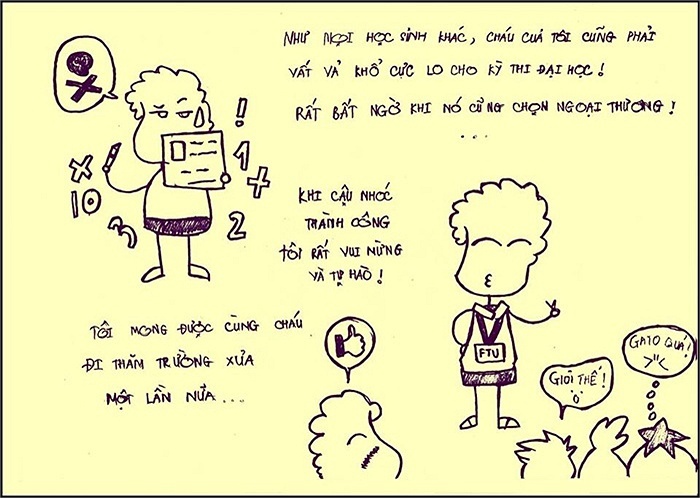 NHƯ MỌI HỌC SINH KHÁC, CHÁU CUẢ TÔI CŨNG PHẢI
VẤT VẢ KHỔ CỰC LO CHO KỲ THI ĐẠI HỌC !
RẤT BẤT NGỜ KHI NÓ CŨNG CHỌN NGOẠI THƯƠNG !
...
! 
1
+
X
10
3
2
KHI CẬU NHÓC
THÀNH CÔNG
TÔI RẤT VUI MỪNG
VÀ TỰ HÀO !
TÔI MONG ĐƯỢC CÙNG CHÁU
ĐI THĂM TRƯỜNG XƯA
MỘT LẦN NỮA ...
FTU
GIỎI THẾ !
'o'
GATO QUÁ !
>"<